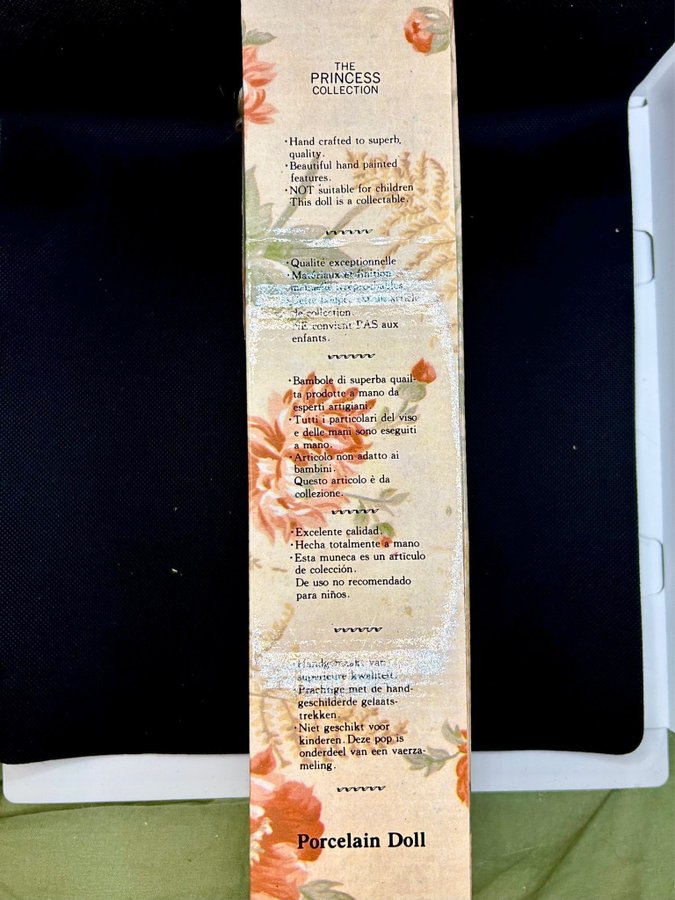 THE
PRINCESS
COLLECTION
·Hand crafted to superb,
quality.
·Beautiful hand painted
features.
·NOT suitable for children
This doll is a collectable.
·Qualité exceptionnelle
·Matériaux et finition
irréprochables
est un article
de collection.
NE convient PAS aux
enfants.
·Bambole di superba quail-
ta prodotte a mano da
esperti artigiani.
·Tutti i particolari del viso
e delle mani sono eseguiti
a mano.
·Articolo non adatto ai
bambini.
Questo articolo è da
collezione.
·Excelente calidad.
·Hecha totalmente a mano
·Esta muneca es un articulo
de colección.
De uso no recomendado
para niños.
·Handgemaakt van
superieure kwaliteit.
·Prachtige met de hand-
geschilderde gelaats-
trekken.
·Niet geschikt voor
kinderen. Deze pop is
onderdeel van een vaerza-
meling.
Porcelain Doll